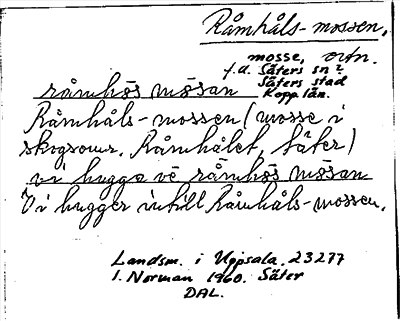 Råmhåls-mossen,
mosse, ortn.
f.d. Säters sn?
Säters stad
Kopp.län.
råmhös mösan
Råmhåls-mossen (mosse i
skogsomr. Råmhålet, Säter)
vi hugga vé råmhös mösan
Vi hugger intill Råmhåls-mossen.
Landsm. i Uppsala. 23277
I. Norman 1960. Säter
DAL.